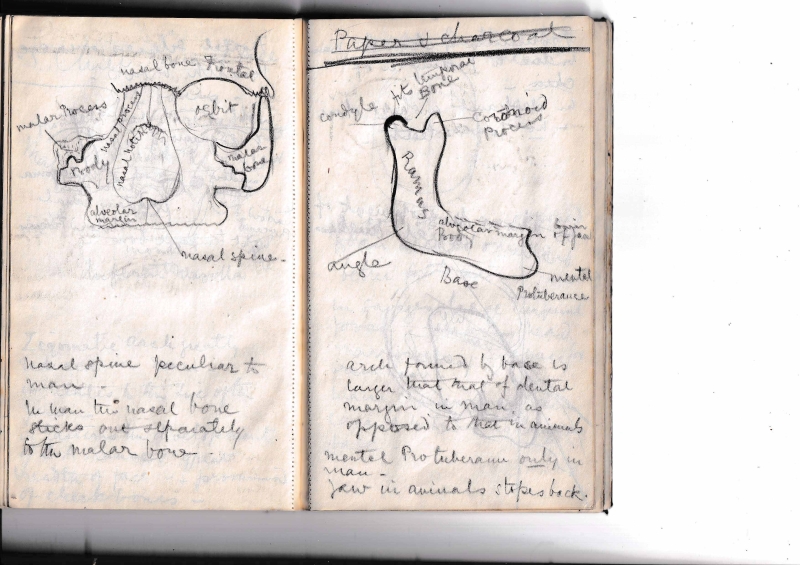 nasal bone Frontal
malar Process
nasal process
orbit
nasal notch
Body
malar
bone
alveolar
margin
nasal spine -
nasal spine peculiar to
man -
In man the nasal bone
sticks out separately
to the malar bone -
Paper & charcoal
fits temporal
Bone
condyle
Coronoid
Process
Ramus
alveolar margin
Body
angle
Base
mental
Protuberance
arch formed by base is
larger that that of dental
margin in man, as
opposed to that in animals
mental Protuberance only in
man -
Jaw in animals slopes back.